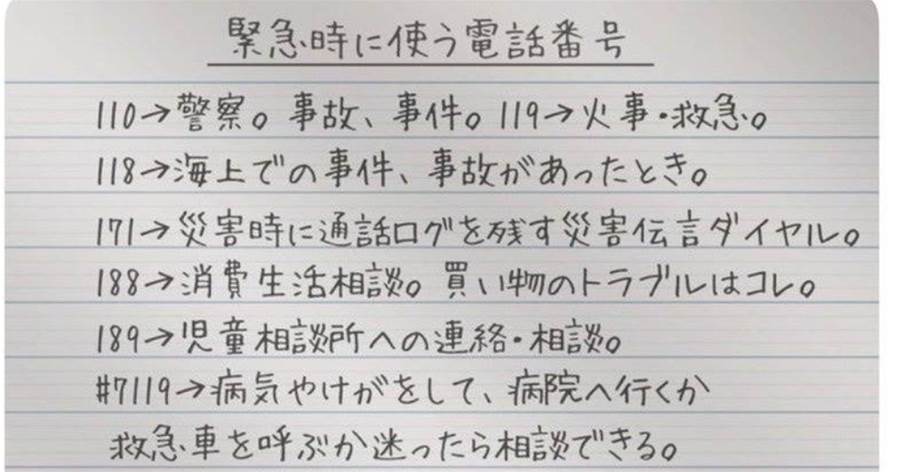 緊急時に使う電話番号
110→警察。事故、事件。119→火事・救急。
118→海上での事件、事故があったとき。
171→災害時に通話ログを残す災害伝言ダイヤル。
188→消費生活相談。買い物のトラブルはコレ。
189→児童相談所への連絡・相談。
#7119→病気やけがをして、病院へ行くか
救急車を呼ぶか迷ったら相談できる。